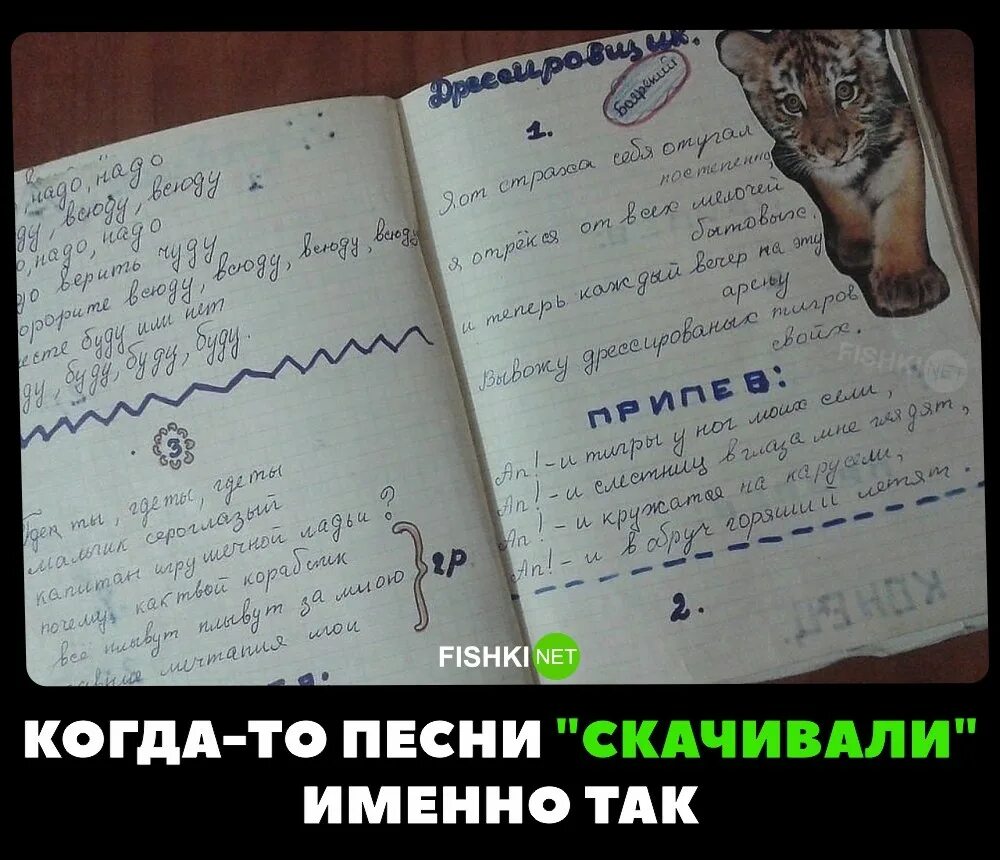 , надо, надо
ду, всюду, всюду
о, надо, надо
до верить чуду
орорите всюду, всюду, всюду, всюду
есте буду или нет
ду, буду, буду, буду.
3
ты, где ты, где ты
мальчик сероглазый
капитан игрушечной ладьи?
почему, как твой кораблик
все плывут плывут за мною
мечтания мои
2р
Дрессировщик.
Боярский
1.
Я от страха себя отугал
постепенно,
я отрёкся от всех мелочей
бытовых.
и теперь каждый вечер на эту
арену
Вывожу дрессированых тигров
свойх.
ПРИПЕВ:
Ап! - и тигры у ног моих сели,
Ап! - и с лестниц в глаза мне глядят,
Ап! - и кружатся на карусели,
Ап! - и в обруч горящий летят.
2.
КОНЕЦ.
FISHKI NET
FISHKI NET
КОГДА-ТО ПЕСНИ "СКАЧИВАЛИ"
ИМЕННО ТАК